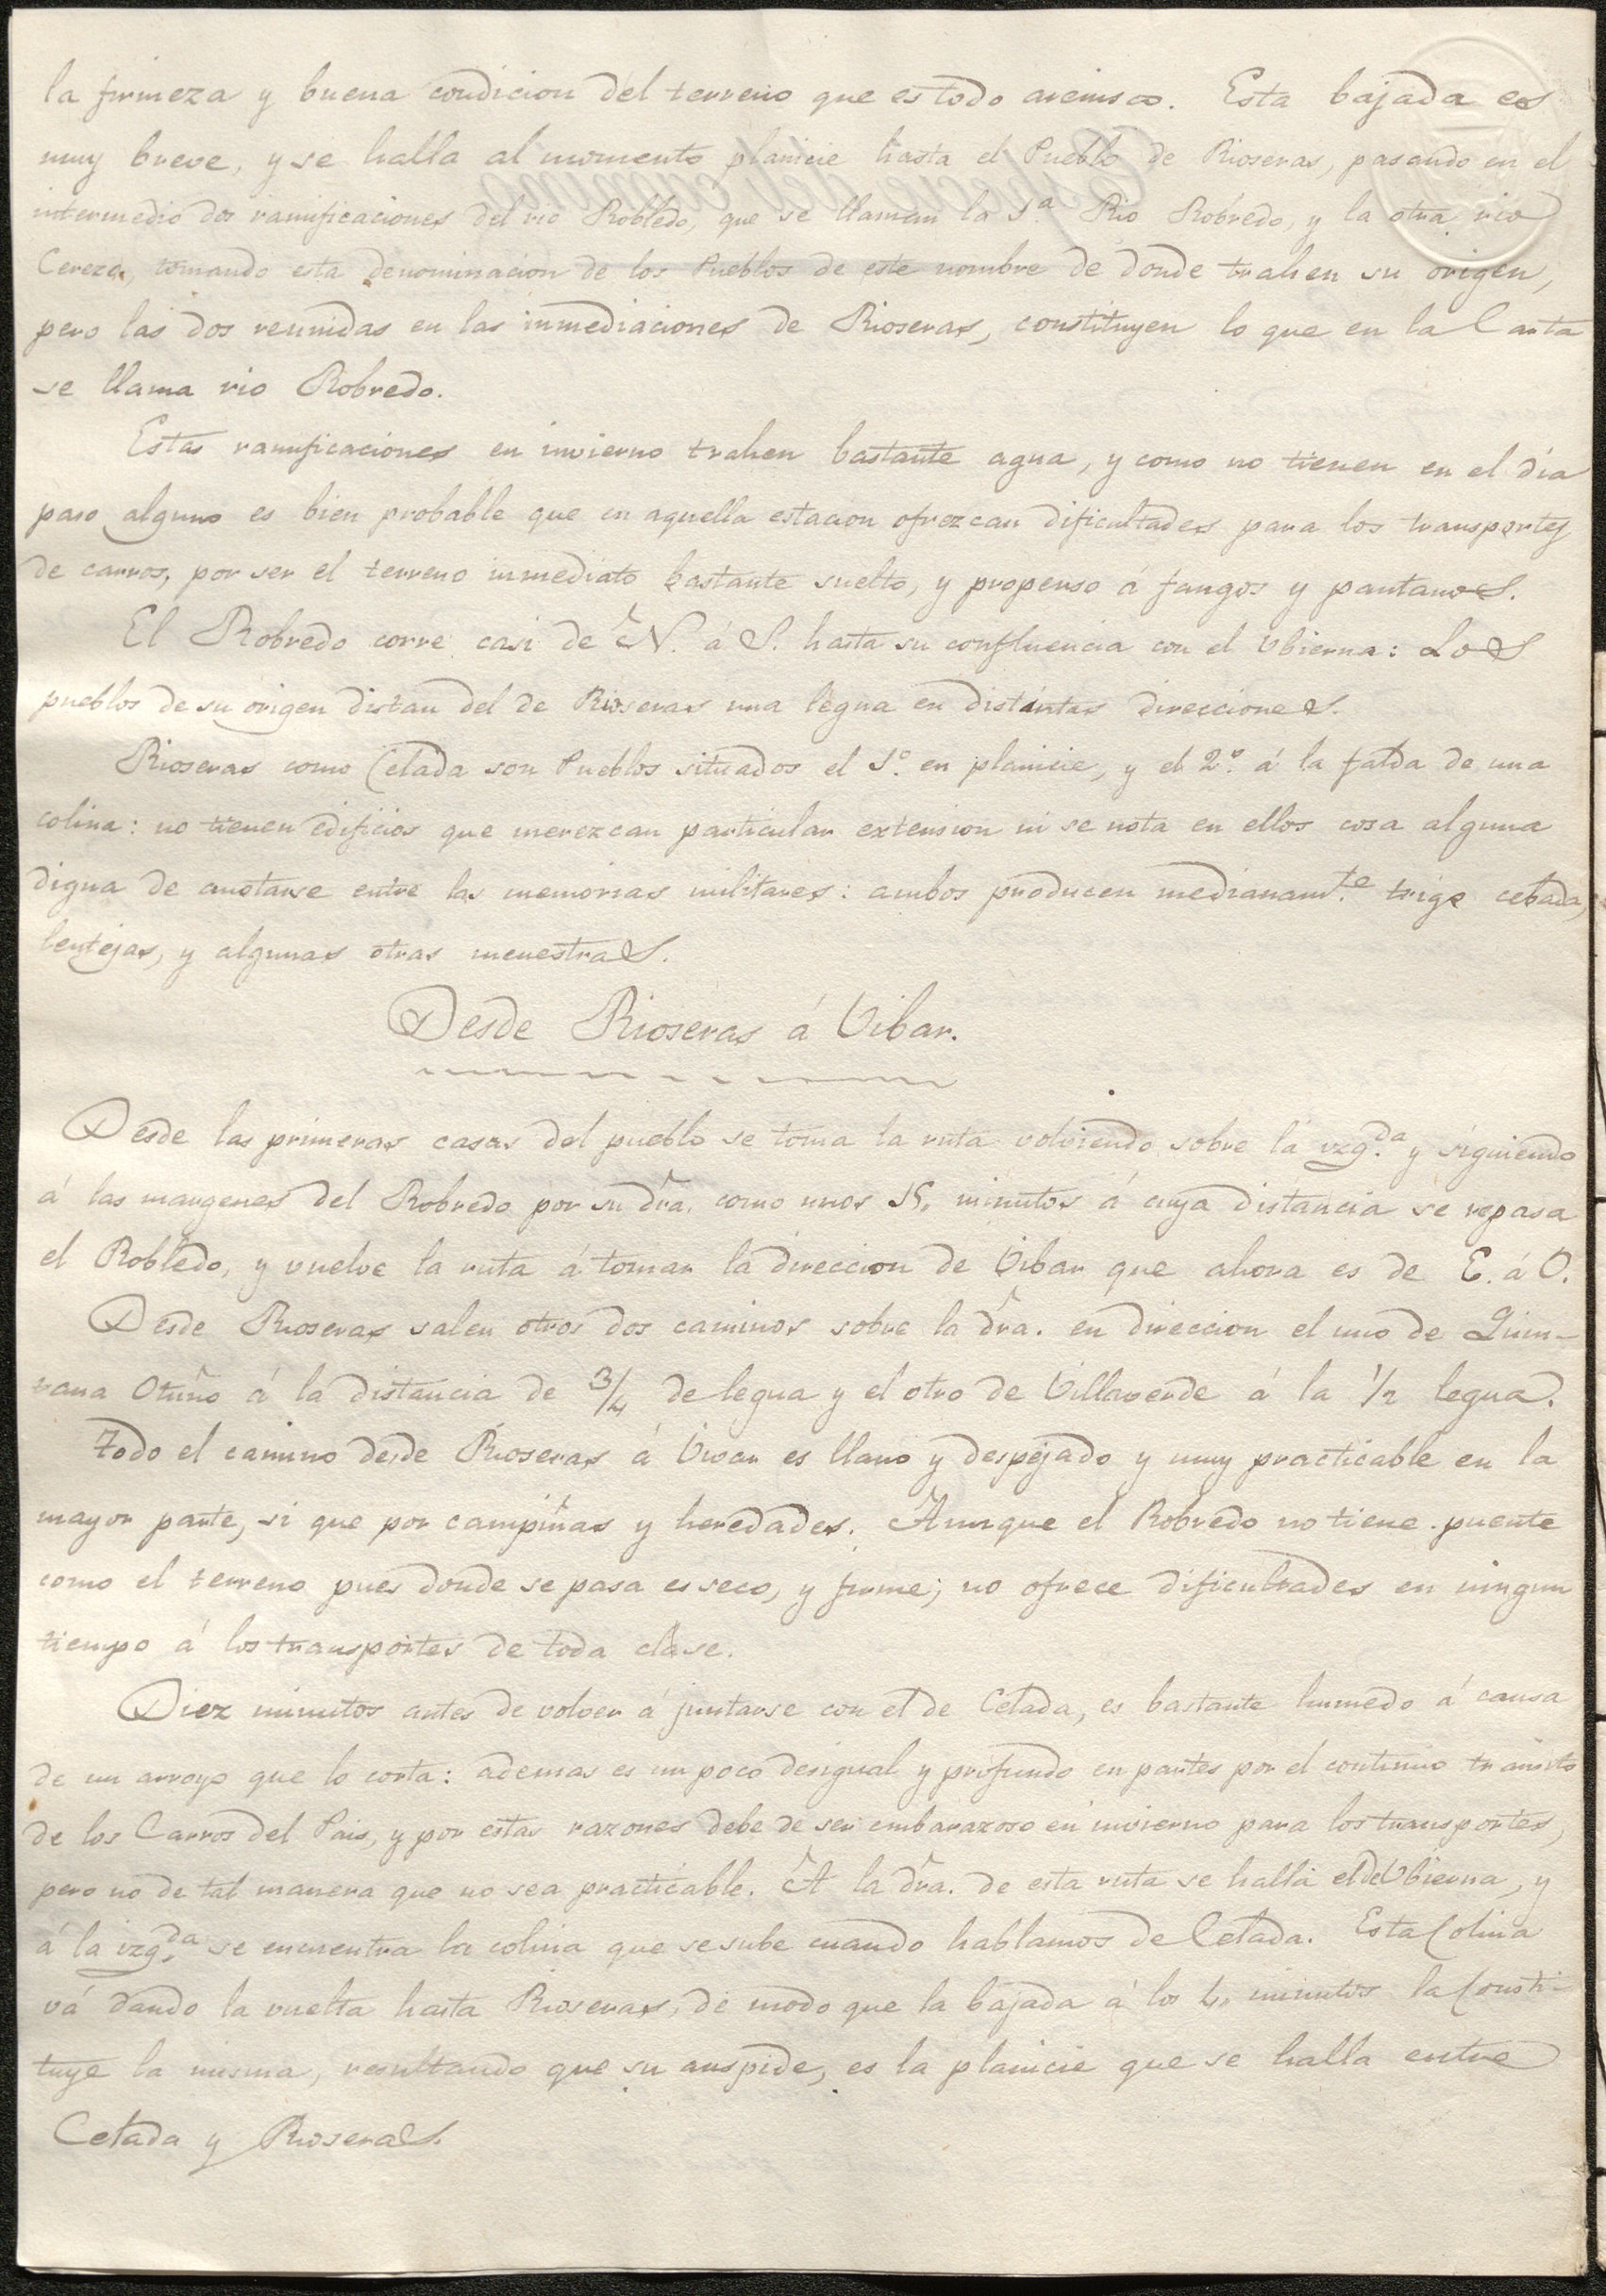 la firmeza y buena condicion del terreno que es todo arenisco. Esta bajada es
muy breve, y se halla al momento planicie hasta el Pueblo de Rioseras, pasando en el
intermedio dos ramificaciones del rio Robledo, que se llaman la 1.ª Rio Robredo, y la otra rio
Cereza, tomando esta denominacion de los Pueblos de este nombre de donde trahen su origen,
pero las dos reunidas en las inmediaciones de Rioseras, constituyen lo que en la Carta
se llama rio Robredo.
Estas ramificaciones en invierno trahen bastante agua, y como no tienen en el dia
paso alguno es bien probable que en aquella estacion ofrezcan dificultades para los transportes
de carros, por ser el terreno inmediato bastante suelto, y propenso á fangos y pantanos.
El Robredo corre casi de N. á S. hasta su confluencia con el Vbierna: Los
pueblos de su origen distan del de Rioseras una legua en distintas direcciones.
Rioseras como Celada son Pueblos situados el 1.º en planicie, y el 2.º á la falda de una
colina: no tienen edificios que merezcan particular extension ni se nota en ellos cosa alguna
digna de anotarse entre las memorias militares: ambos producen medianam.te trigo cebada,
lentejas, y algunas otras menestras.
Desde Rioseras á Vibar.
Desde las primeras casas del pueblo se toma la ruta volviendo sobre la yzq.da y siguiendo
á las margenes del Robredo por su dra. como unos 15, minutos á cuya distancia se repasa
el Robledo, y vuelve la ruta á tomar la direccion de Vibar que ahora es de E. á O.
Desde Rioseras salen otros dos caminos sobre la dra. en direccion el uno de Quin-
tana Otuño á la distancia de 3/4 de legua y el otro de Villaverde á la 1/2 legua.
Todo el camino desde Rioseras á Vivar es llano y despejado y muy practicable en la
mayor parte, si que por campiñas y heredades. Aunque el Robredo no tiene puente
como el terreno pues donde se pasa es seco, y firme; no ofrece dificultades en ningun
tiempo á los transportes de toda clase.
Diez minutos antes de volver á juntarse con el de Celada, es bastante humedo á causa
de un arroyo que lo corta: ademas es un poco desigual y profundo en partes por el continuo transito
de los Carros del Pais, y por estas razones debe de ser embarazoso en invierno para los transportes,
pero no de tal manera que no sea practicable. A la dra. de esta ruta se halla el de Vbierna, y
á la izq.da se encuentra la colina que se sube cuando hablamos de Celada. Esta Colina
vá dando la vuelta hasta Rioseras, de modo que la bajada á los 4, minutos la Consti-
tuye la misma, resultando que su auspide, es la planicie que se halla entre
Celada y Rioseras.